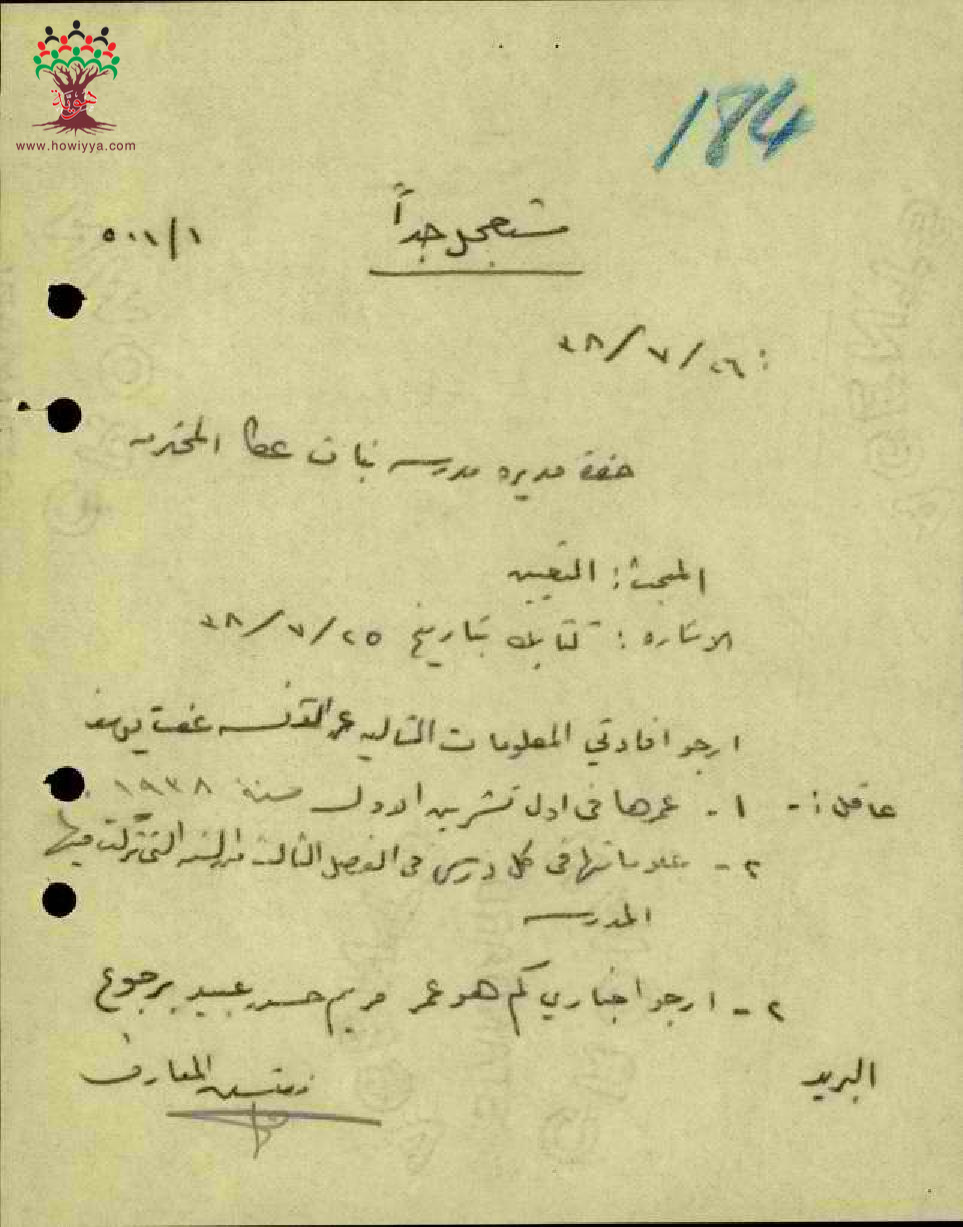 هوية
www.howiyya.com
184
مستعجل جداً
٥٠١/١
: ٢٦/٧/٣٨
حضرة مديرة مدرسة بنات عكا المحترمه
المبحث : التعيين
الاشاره : كتابك بتاريخ ٢٥/٧/٣٨
ارجو افادتي المعلومات التاليه عن الآنسه عفت يوسف
عاقل :- ١- عمرها في اول تشرين الاول سنة ١٩٣٨ .
٢- علاماتها في كل درس في الفصل الثالث من السنه التي تركت فيها
المدرسه
٢- ارجو اخباري كم هو عمر مريم حسن عبيد برجوع
البريد
مفتش المعارف